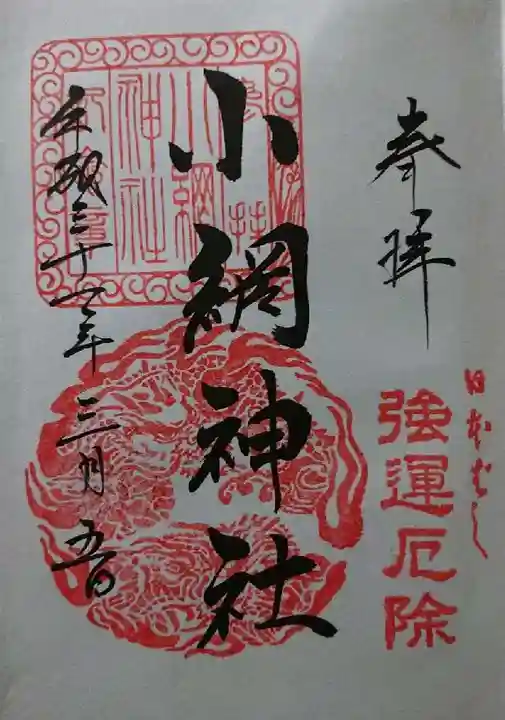 奉拝
日本ばし
強運厄除
小網神社
平成三十一年三月五日